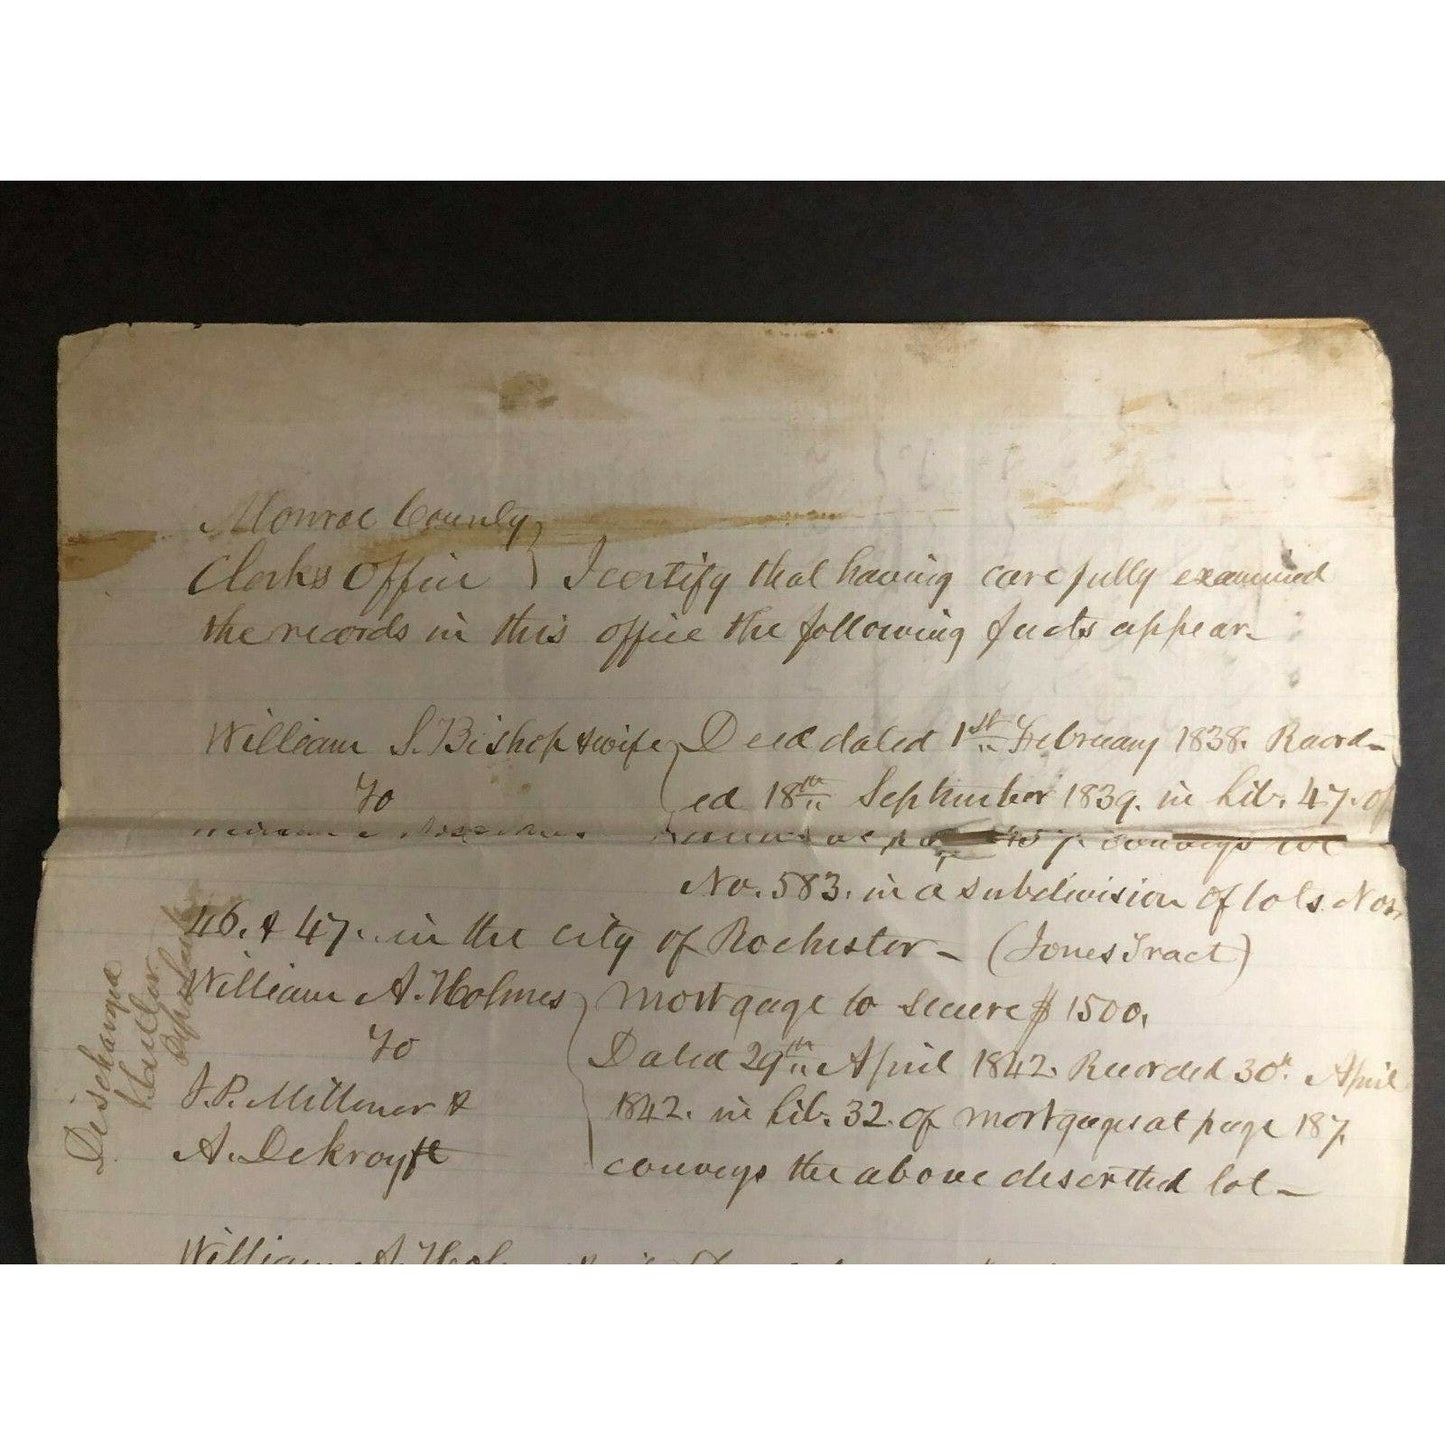 Monroe County
Clerks Office } I certify that having carefully examined
the records in this office the following facts appear
William S. Bishop & wife } Deed dated 1st February 1838. Record-
To
ed 18th September 1839. in Lib. 47. of
conveys lot
No. 583. in a subdivision of lots Nos
46. & 47. in the city of Rochester - (Jones Tract)
William A. Holmes } Mortgage to secure $1500.
To
Dated 29th April 1842. Recorded 30th April
J. P. Millener &
1842. in Lib. 32. of Mortgages at page 187.
A. Dekroyft
conveys the above described lot -
Discharged
William A. Hol